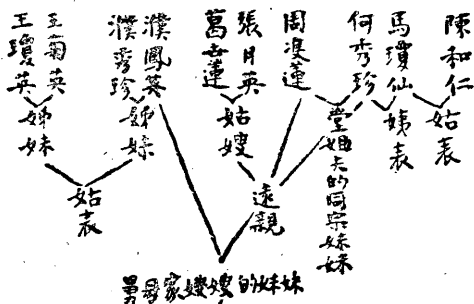 陳和仁
馬瓊仙
何秀珍
周浚蓮
張月英
葛世蓮
濮鳳英
濮秀珍
王菊英
王瓊英
姑表
姨表
堂姐夫的同宗妹妹
姑嫂
姊妹
姊妹
遠親
姑表
舅舅家嫂嫂的妹妹